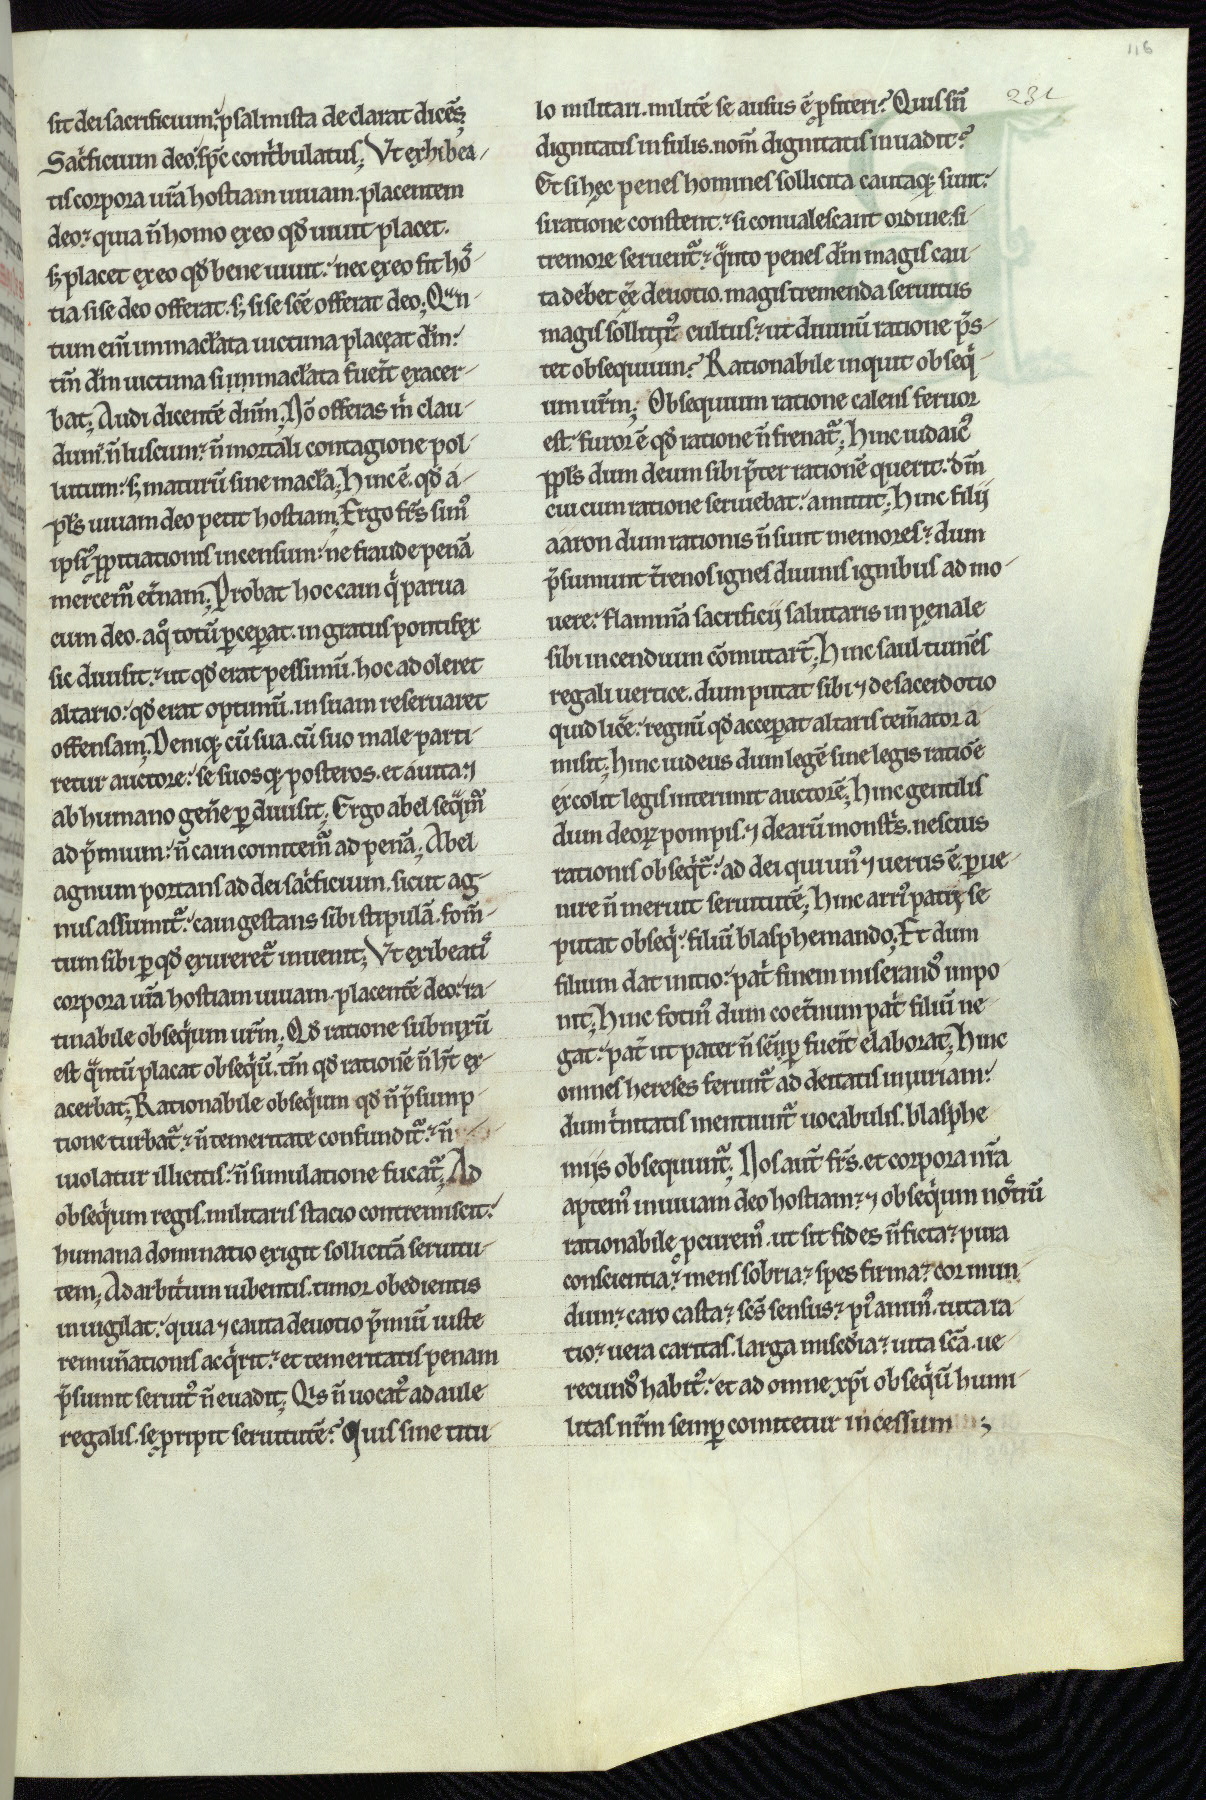 116
231
sit dei sacrificium. psalmista declarat dicēs;
Sacͥficium deo sp̄c contͥbulatus; Vt exhibea-
tis corpora ur̄a hostiam uiuam. placentem
deo. quia n̄ homo ex eo qđ uiuit placet.
sꝫ placet ex eo qđ bene uiuit. nec ex eo fit hos̄
tia si se deo offerat. sꝫ si se sc̄e offerat deo; Qͣn-
tum eni̅ immac̄lata uictima placeat dn̄m.
tm̄ dn̄m uictima si immac̄lata fuerͥt exacer-
bat; Audi dicentē dn̄m; Nō offeras m̄ clau-
dum. n̄ luscum. n̄ mortali contagione pol-
lutum. sꝫ maturū sine mac̄la; Hinc ē qđ a-
pl̄s uiuam deo petit hostiam; Ergo fr̄s simꝰ
ipsiꝰ ꝓpitiationis incensum. ne fraude penā
mercem̄ et̄nam; Probat hoc cain qͥ parua
cum deo. a qͦ totū ꝑceperat. ingratus pontifex
sic diuisit. ut qđ erat pessimū. hoc adoleret
altario. qđ erat optimū. in suam reseruaret
offensam; Deniqꝫ cū sua. cū suo male parti-
retur auctore. se suosqꝫ posteros. et a uita ⁊
ab humano gen̄e ꝑdiuisit; Ergo abel seqͣm̄
ad p̄mium. n̄ cain comitem̄ ad penā; Abel
agnum portans ad dei sacͥficium. sicut ag-
nus assumitᷣ. cain gestans sibi stipulā. fom̄-
tum sibi ꝑ qđ exureretᷣ inuenit; Vt exibeatiꝰ
corpora ur̄a hostiam uiuam. placentē deo. ra-
tinabile obseqͥum ur̄m; Qđ ratione subnixū
est qͣntū placat obseqͥū. tm̄ qđ rationē n̄ h̄t ex-
acerbat; Rationabile obseqͥum qđ n̄ p̄sump-
tione turbatᷣ. n̄ temeritate confunditᷣ. n̄
uiolatur illicitis. n̄ simulatione fucatᷣ; Ad
obseqͥum regis. militaris stacio contremiscit.
humana dominatio exigit sollicitā seruitu-
tem; Ad arbitͥum iubentis. timor obedientis
inuigilat. quia ⁊ cauta deuotio p̄miū iuste
remun̄ationis acqͥrit. et temeritatis penam
p̄sumit seruitꝰ n̄ euadit; Qis n̄ uocatꝰ ad aule
regalis. se pripit seruitutē? Quis sine titu-
lo militari. militē se ausus ē ꝓfiteri? Quis sn̄
dignitatis infulis. nom̄ dignitatis inuadit?
Et si hęc penes homines sollicita cautaqꝫ sunt.
si ratione constent. si conualescant ordine. si
tremore seruentᷣ. qͣnto penes dn̄m magis cau-
ta debet eē deuotio. magis tremenda seruitus
magis sollicitꝰ cultus. ut diuinū ratione p̄s-
tet obsequium? Rationabile inquit obseqͥ-
um ur̄m; Obsequium ratione calens feruor
est. furor ē qđ ratione n̄ frenatᷣ; Hinc iudaicꝰ
ppl̄s dum deum sibi p̄ter rationē querit. dn̄m
cui cum ratione seruiebat. amittit; Hinc filij
aaron dum rationis n̄ sunt memores. dum
p̄sumunt t̄renos ignes diuinis ignibus admo-
uere. flam̄nā sacrificij salutaris in penale
sibi incendium cōmutart̄; Hinc saul tumēs
regali uertice. dum putat sibi ⁊ de sacerdotio
quid licē. regnū qđ acceperat altaris tem̄ator a-
misit; Hinc iudeus dum legē sine legis ratiōe
excolit legis interimit auctorē; Hinc gentilis
dum deoꝝ pompis. ⁊ dearū monstͥs. nescius
rationis obseqͥtᷣ. ad dei qui unꝰ ⁊ uerus ē ꝑue-
nire n̄ meruit seruitutē; Hinc arriꝰ patri se
putat obseqͥ. filiū blasphemando; Et dum
filium dat initio. patͥ finem miserandꝰ impo-
nit; Hinc fotinꝰ dum coet̄num patͥ filiū ne-
gat. pat̄ ut pater n̄ semꝑ fuerͥt elaborat; Hinc
omnes hereses feruntᷣ ad deitatis iniuriam.
dum tͥnitatis mentiuntᷣ uocabulis. blasphe-
mijs obsequuntᷣ; Nos aut̄ fr̄s. et corpora nr̄a
aptemꝰ in uiuam deo hostiam. ⁊ obseqͥum nostrū
rationabile ꝓcuremꝰ. ut sit fides n̄ ficta. pura
conscientia. mens sobria. spes firma. cor mun-
dum. caro casta. sc̄s sensus. piꝰ animꝰ. tuta ra-
tio. uera caritas. larga misedia. uita sc̄a. ue-
recundꝰ habitꝰ. et ad omne xp̄i obseqͥū humi-
litas nr̄m semꝑ comitetur incessum ;